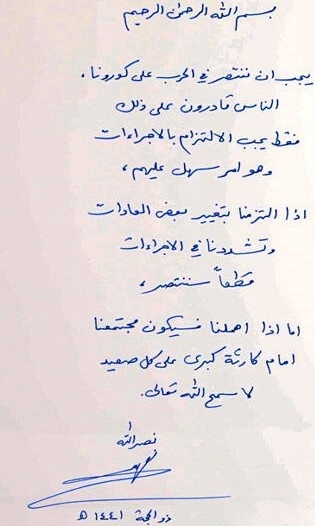 بسم الله الرحمن الرحيم
يجب ان ننتصر في الحرب على كورونا،
الناس قادرون على ذلك
فقط يجب الالتزام بالاجراءات
وهو امر سهل عليهم،
اذا التزمنا بتغيير بعض العادات
وتشددنا في الاجراءات
قطعاً سننتصر،
اما اذا اهملنا فسيكون مجتمعنا
امام كارثة كبرى على كل صعيد
لا سمح الله تعالى.
نصرالله
ذو الحجة ١٤٤١ هـ